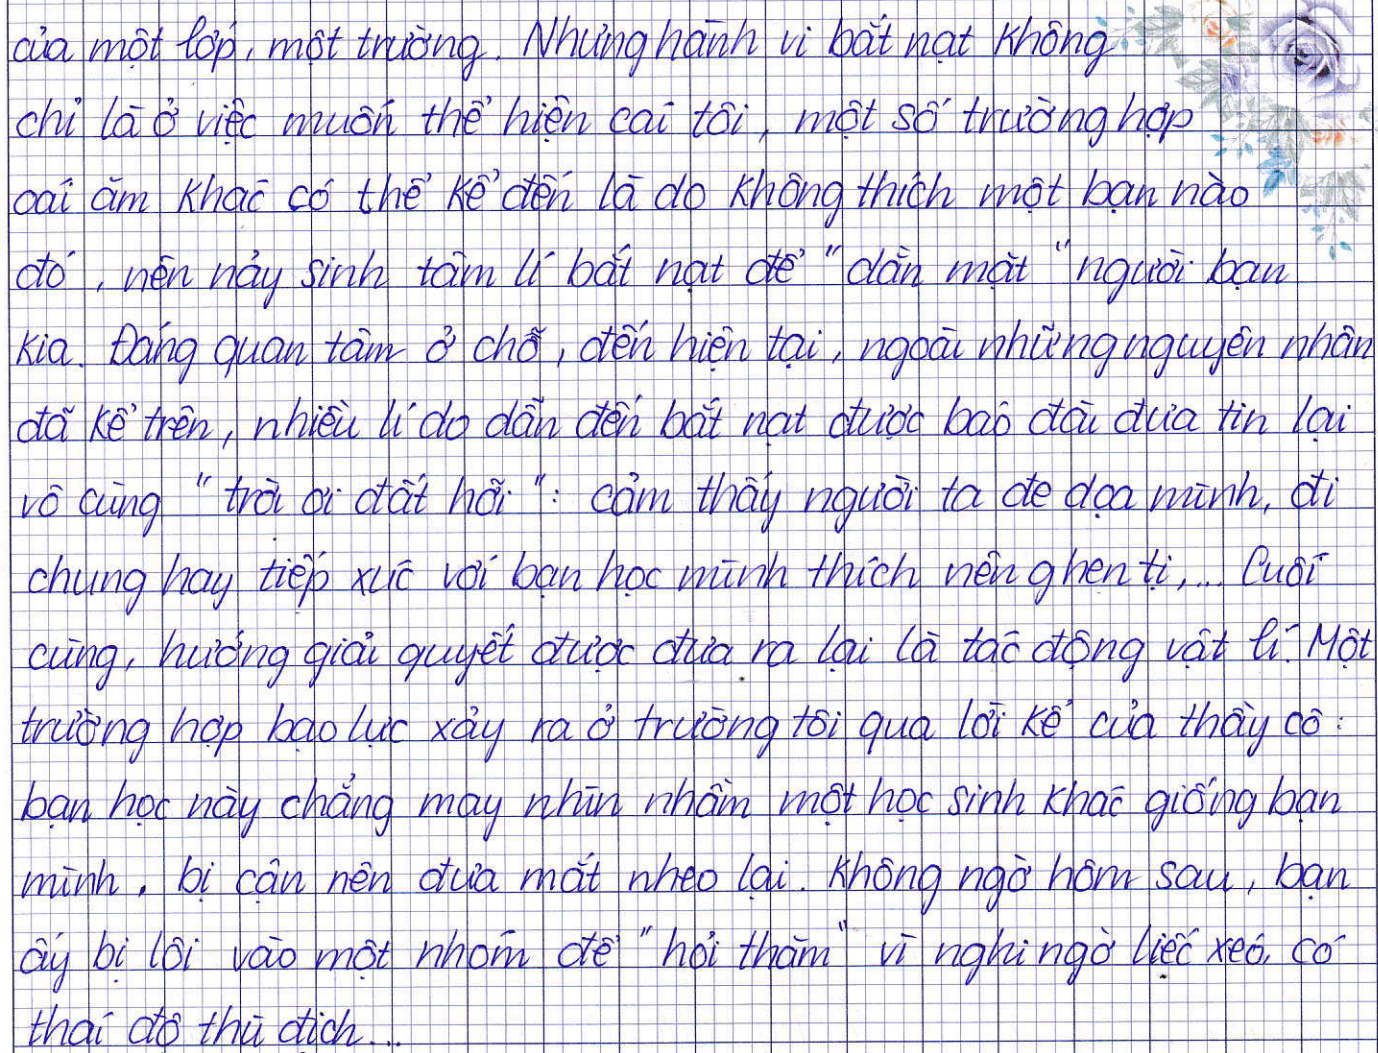 của một lớp, một trường. Nhưng hành vi bắt nạt không
chỉ là ở việc muốn thể hiện cái tôi, một số trường hợp
oái ăm khác có thể kể đến là do không thích một bạn nào
đó, nên nảy sinh tâm lí bắt nạt để "dằn mặt" người bạn
kia. Đáng quan tâm ở chỗ, đến hiện tại, ngoài những nguyên nhân
đã kể trên, nhiều lí do dẫn đến bắt nạt được báo đài đưa tin lại
vô cùng "trời ơi đất hỡi": cảm thấy người ta đe dọa mình, đi
chung hay tiếp xúc với bạn học mình thích nên ghen tị,... Cuối
cùng, hướng giải quyết được đưa ra lại là tác động vật lí. Một
trường hợp bạo lực xảy ra ở trường tôi qua lời kể của thầy cô:
bạn học này chẳng may nhìn nhầm một học sinh khác giống bạn
mình, bị cận nên đưa mắt nheo lại. Không ngờ hôm sau, bạn
ấy bị lôi vào một nhóm để "hỏi thăm" vì nghi ngờ liếc xéo, có
thái độ thù địch...